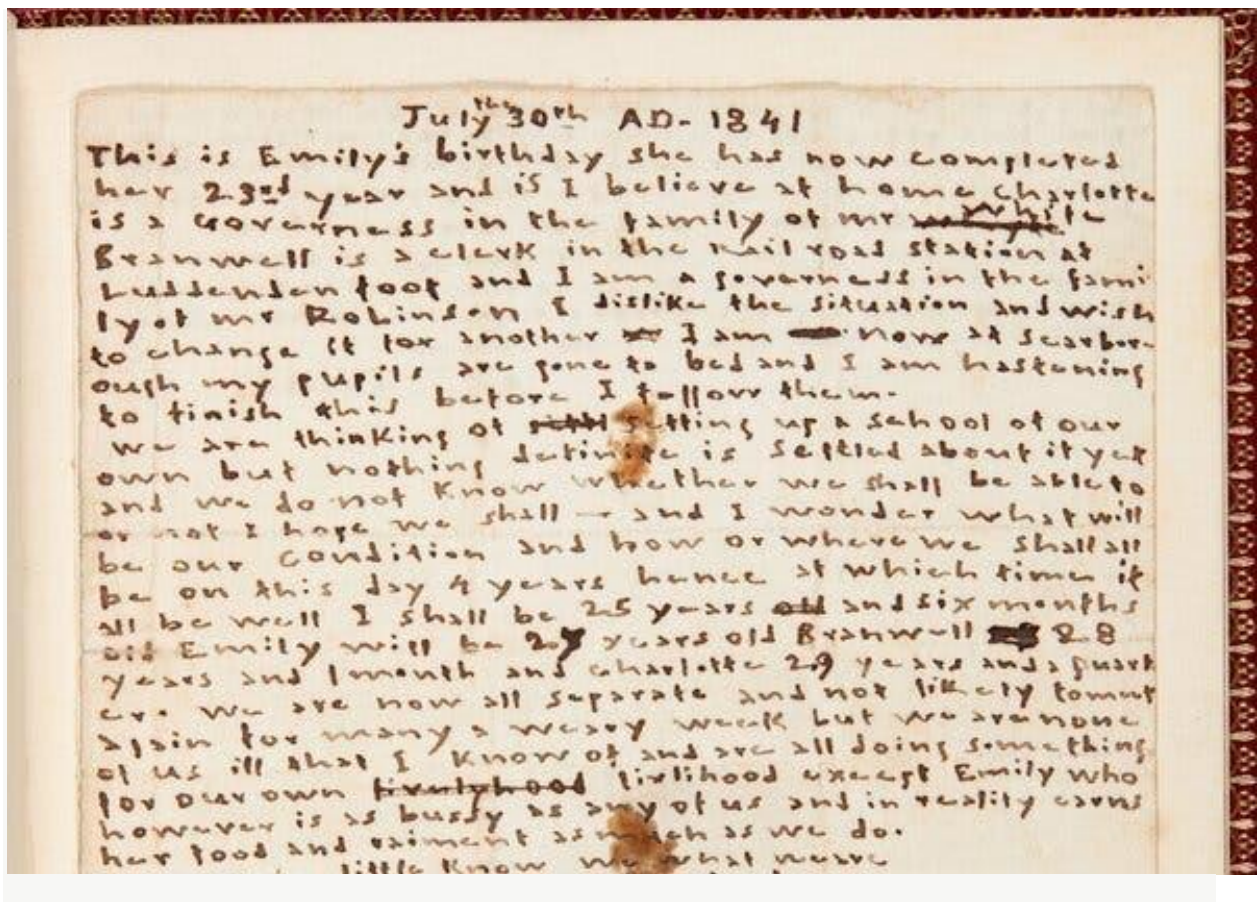 July the 30th AD- 1841
This is Emily's birthday she has now completed
her 23rd year and is I believe at home Charlotte
is a Governess in the family of mr White
Branwell is a clerk in the Rail road station at
Luddenden foot and I am a governess in the fami
ly of mr Robinson I dislike the situation and wish
to change it for another I am now at Scarbor-
ough my pupils are gone to bed and I am hastening
to finish this before I follow them-
we are thinking of setting up a school of our
own but nothing definite is settled about it yet
and we do not know whether we shall be able to
or not I hope we shall - and I wonder what will
be our condition and how or where we shall all
be on this day 4 years hence at which time if
all be well I shall be 25 years old and six months
old Emily will be 27 years old Branwell 28
years and 1 month and Charlotte 29 years and a quart
er. we are now all separate and not likely to meet
again for many a weary week but we are none
of us ill that I know of and are all doing something
for our own livelyhood livlihood except Emily who
however is as bussy as any of us and in reality earns
her food and raiment as much as we do.
little know we what we are